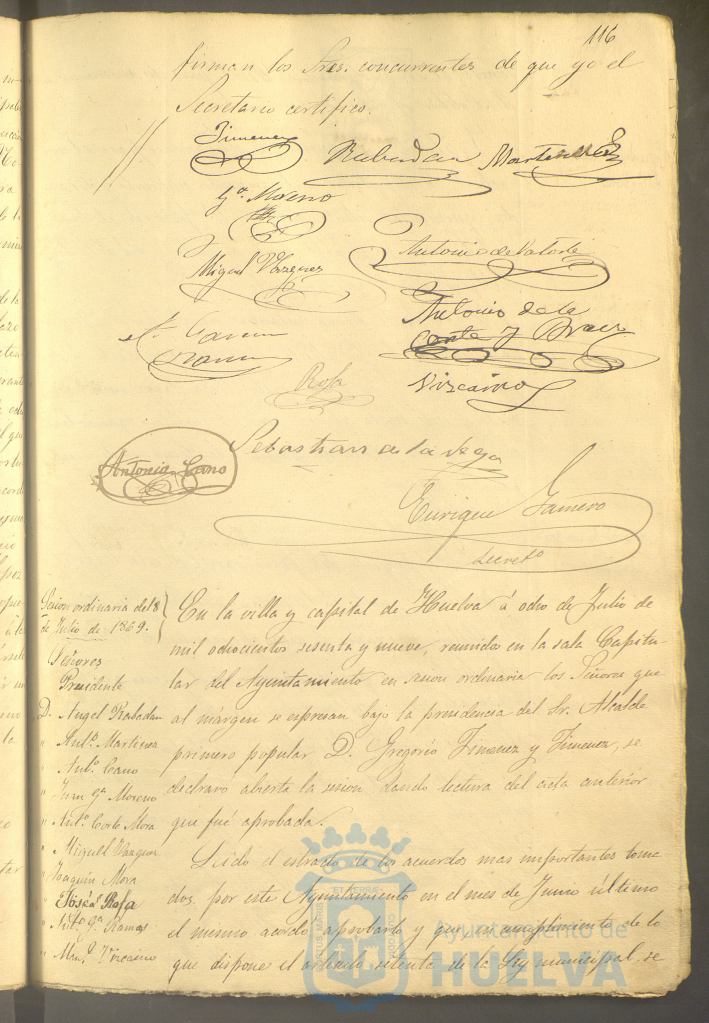 116
firman los Sres. concurrentes de que yo el
Secretario certifico.
Jimenez
Rabadan Martinez
Ga. Moreno
Miguel Vazquez
Antonio de la Corte
Antonio de la
Corte y Bravo
A. Garcia
Ramos
Rofa
Vizcaino
Sebastian de la Vega
Antonio Cano
Enrique Gamero
Secreto
Sesion ordinaria del 8
de Julio de 1869.
Señores
Presidente
D. Angel Rabadan
" Anto. Martinez
" Anto. Cano
" Juan Ga. Moreno
" Anto. Corte Mora
" Miguel Vazquez
" Joaquin Mora
" José Rofa
" Anto. Ga. Ramos
" Manl. Vizcaino
En la villa y capital de Huelva á ocho de Julio de
mil ochocientos sesenta y nueve, reunidos en la sala Capitu-
lar del Ayuntamiento en sesion ordinaria los Señores que
al márgen se espresan bajo la presidencia del Sr. Alcalde
primero popular D. Gregorio Jimenez y Jimenez, se
declaró abierta la sesion dando lectura del acta anterior
que fué aprobada.
Leido el estracto de los acuerdos mas importantes toma-
dos por este Ayuntamiento en el mes de Junio último
el mismo acordó aprobarlo y que en cumplimiento de lo
que dispone el articulo setenta de la Ley municipal se
Ayuntamiento de
HUELVA